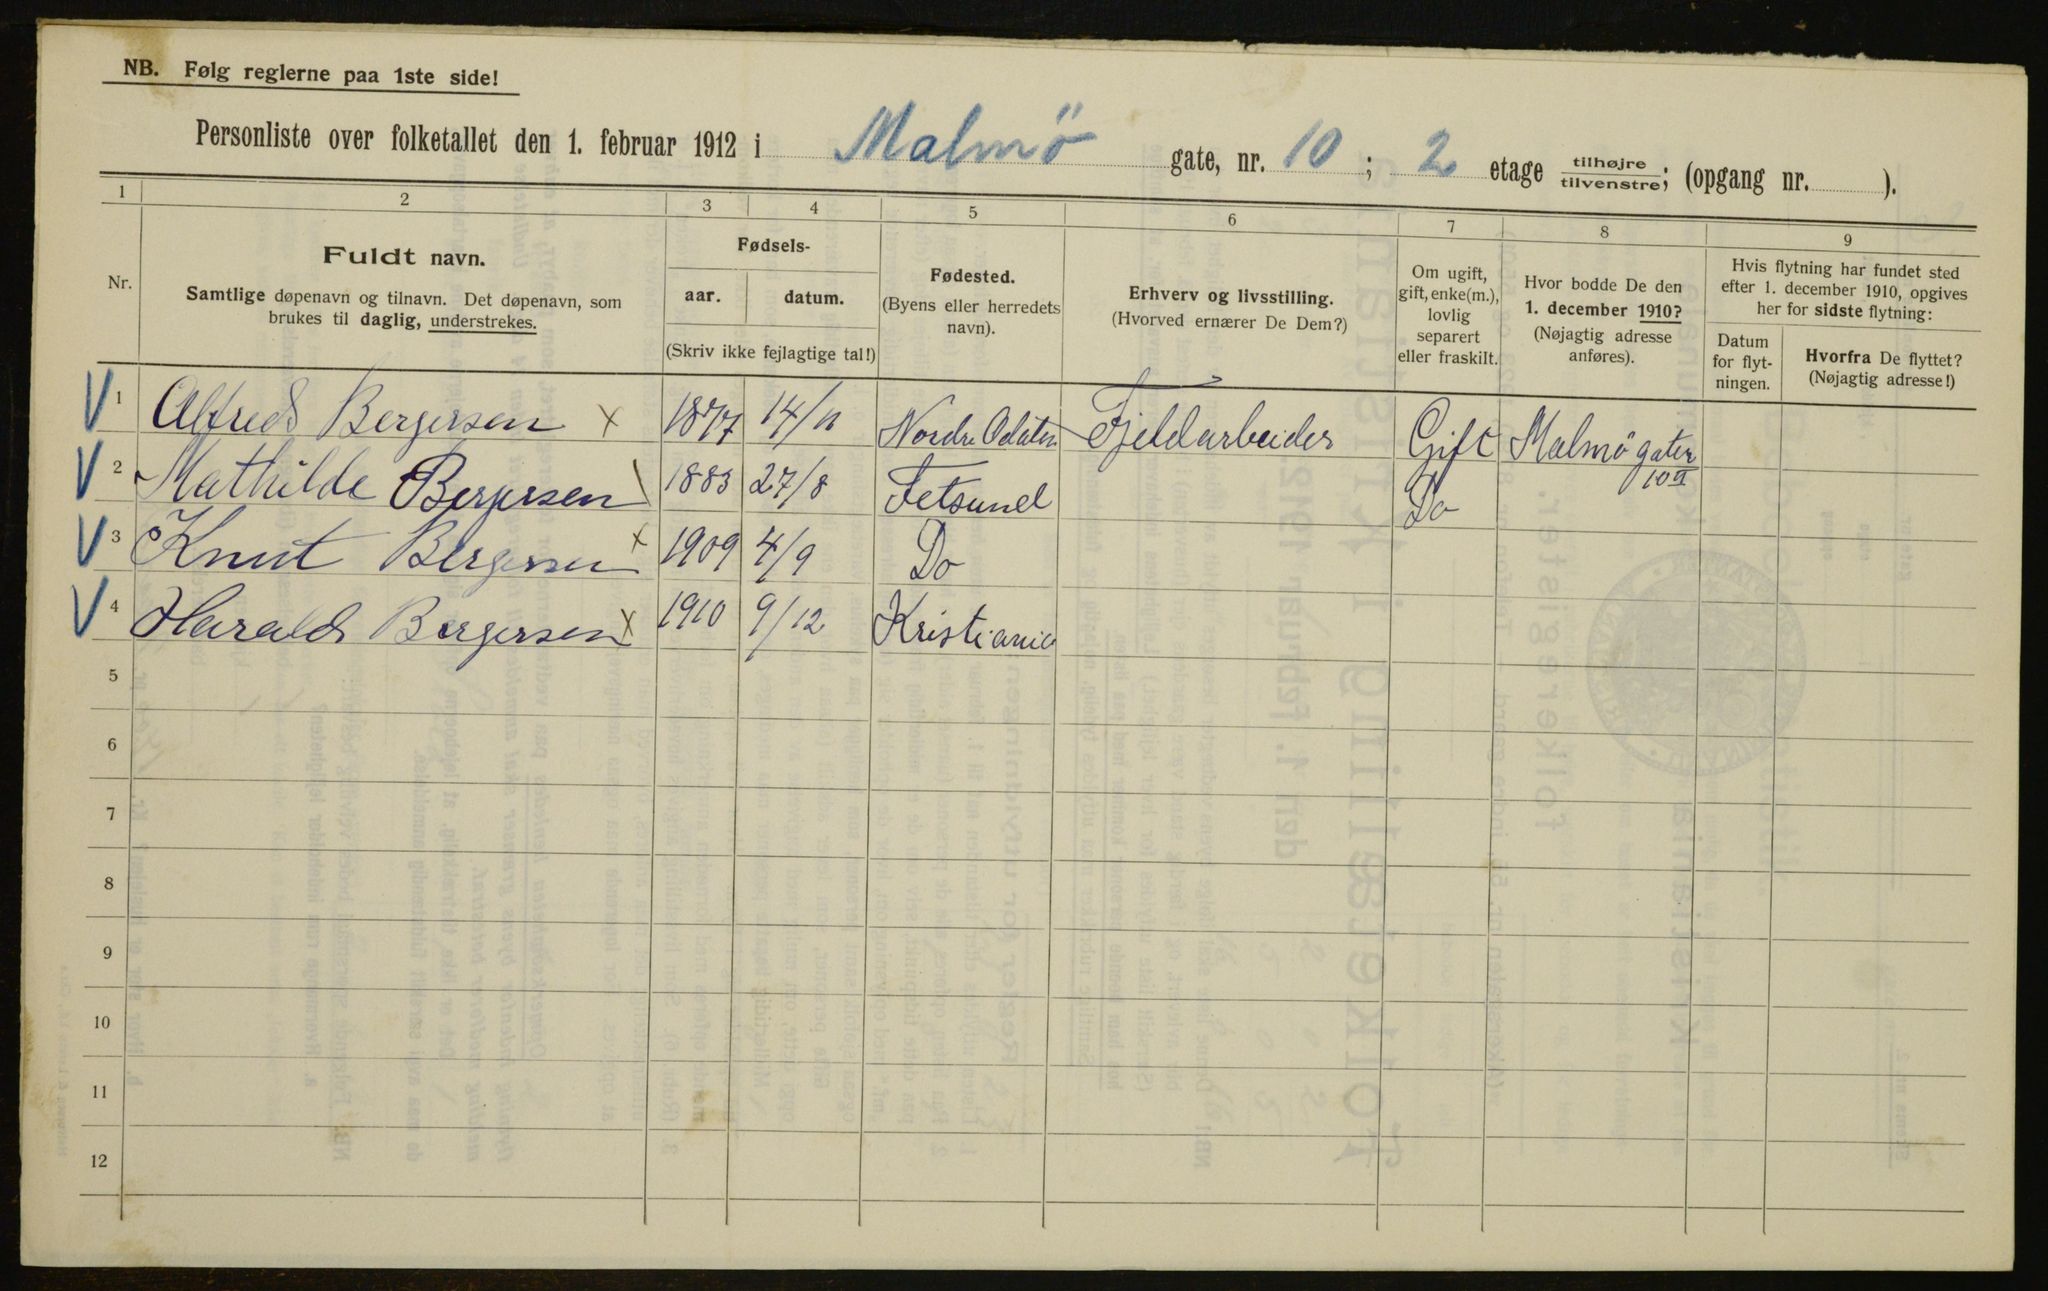 NB. Følg reglerne paa 1ste side!
Personliste over folketallet den 1. februar 1912 i Malmö gate, nr. 10 ; 2 etage tilhøjre/tilvenstre; (opgang nr. ).
1 2 3 4 5 6 7 8 9
Nr.
Fuldt navn.
Samtlige døpenavn og tilnavn. Det døpenavn, som
brukes til daglig, understrekes.
Fødsels-
aar. datum.
(Skriv ikke fejlagtige tal!)
Fødested.
(Byens eller herredets
navn).
Erhverv og livsstilling.
(Hvorved ernærer De Dem?)
Om ugift,
gift, enke(m.),
lovlig
separert
eller fraskilt.
Hvor bodde De den
1. december 1910?
(Nøjagtig adresse
anføres).
Hvis flytning har fundet sted
efter 1. december 1910, opgives
her for sidste flytning:
Datum
for flyt-
ningen.
Hvorfra De flyttet?
(Nøjagtig adresse!)
V 1 Alfred Bergersen x 1877 14/11 Nordre Fjeldarbeider Gift Malmö gaten
10
V 2 Mathilde Bergersen \ 1883 27/8 Fetsund Do
V 3 Knut Bergersen x 1909 4/9 Do
V 4 Harald Bergersen x 1910 9/12 Kristiania
5
6
7
8
9
10
11
12